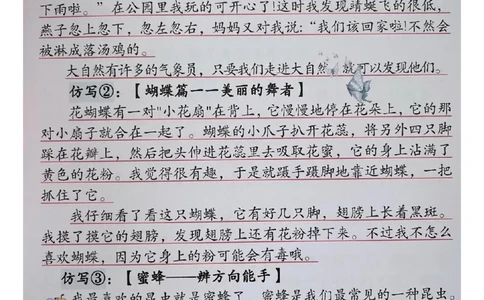 下雨啦。”在公园里我玩的可开心了！这时我发现蜻蜓飞的很低，
燕子忽上忽下，忽左忽右，妈妈又对我说：“我们该回家啦！不然会
被淋成落汤鸡的。
大自然有许多的气象员，只要我们走进大自然 就可以发现他们。
仿写②：【 蝴蝶篇——美丽的舞者】
花蝴蝶有一对“小花扇”在背上，它慢慢地停在花朵上，它的那
对小扇子就合在一起了。蝴蝶的小爪子扒开花蕊，将另外四只脚
踩在花瓣上，然后把头伸进花蕊里去吸取花蜜，它的身上沾满了
黄色的花粉。我觉得很有趣，于是就蹑手蹑脚地靠近蝴蝶，一把
抓住了它。
我仔细看了看这只蝴蝶，它有好几只脚，翅膀上长着黑斑。
我摸了摸它的翅膀，发现翅膀上还有花粉掉下来。不过我不怎么
喜欢蝴蝶，因为它身上的粉可能会有毒哦。
仿写③：【 蜜蜂——辨方向能手】
我最喜欢的昆虫就是蜜蜂了 蜜蜂是我们最常见的一种昆虫。